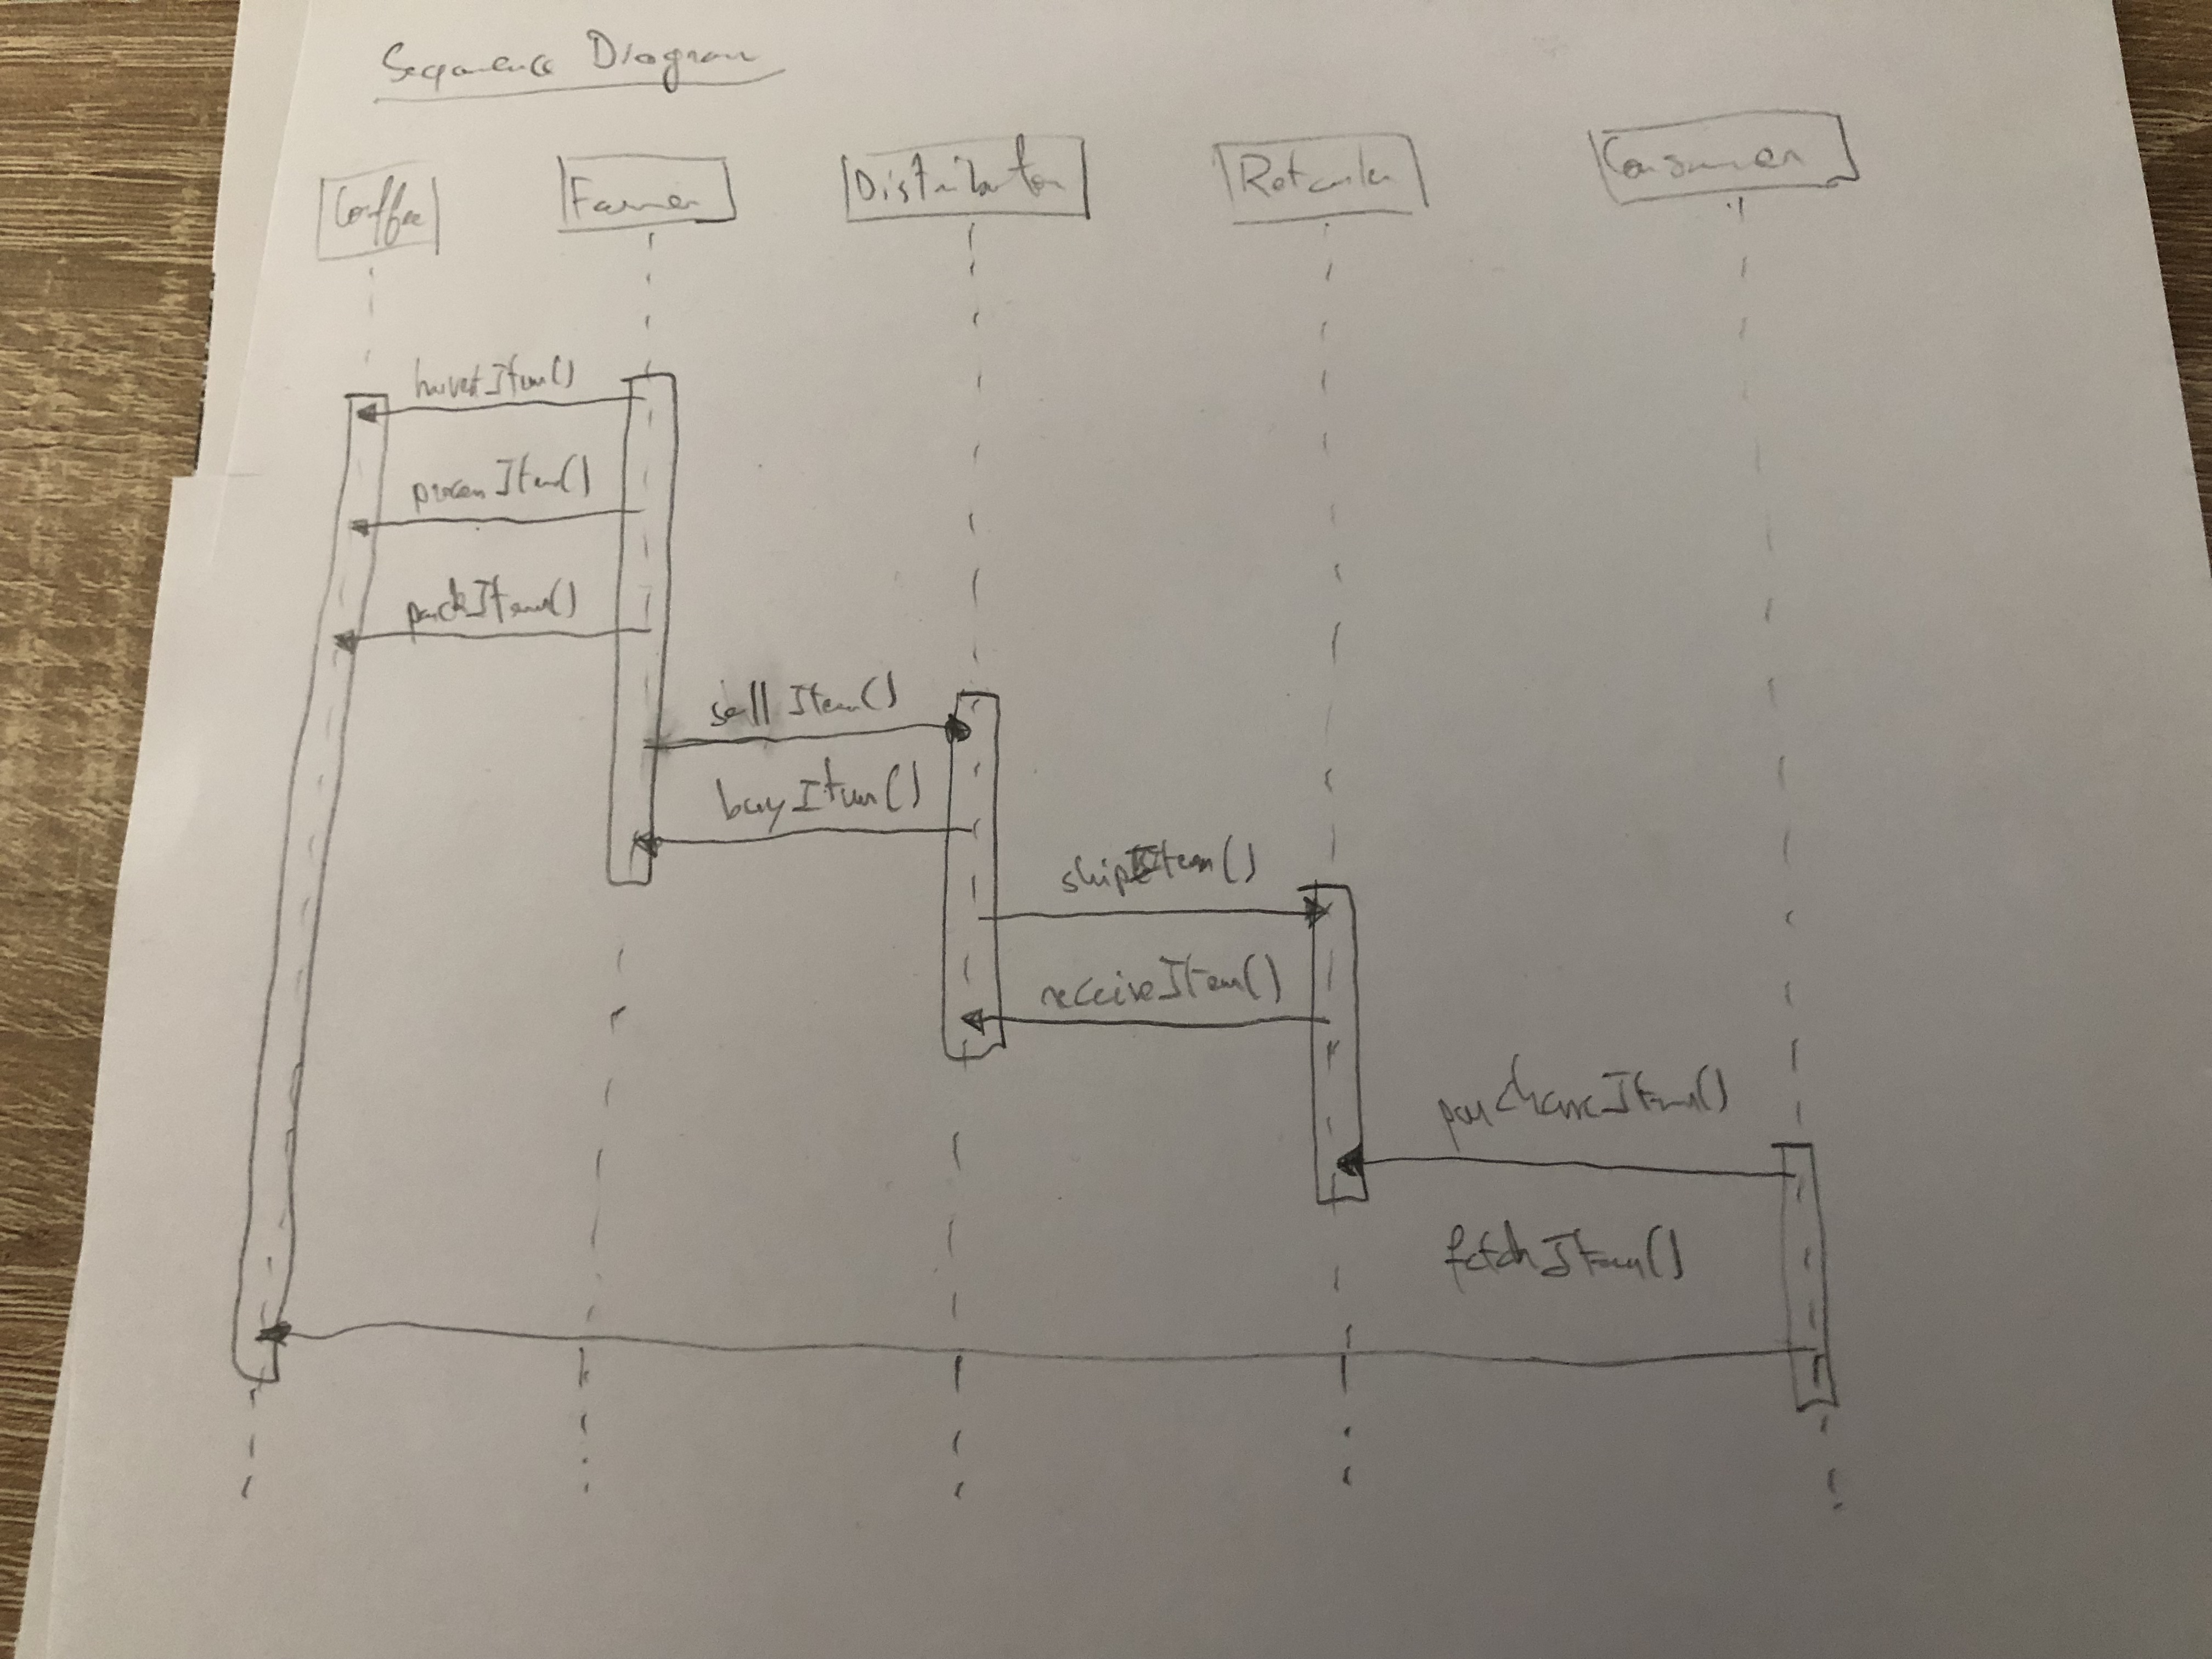 Sequence Diagram
Coffee
Farmer
Distributor
Retailer
Consumer
harvestItem()
processItem()
packItem()
sellItem()
buyItem()
shipItem()
receiveItem()
purchaseItem()
fetchItem()